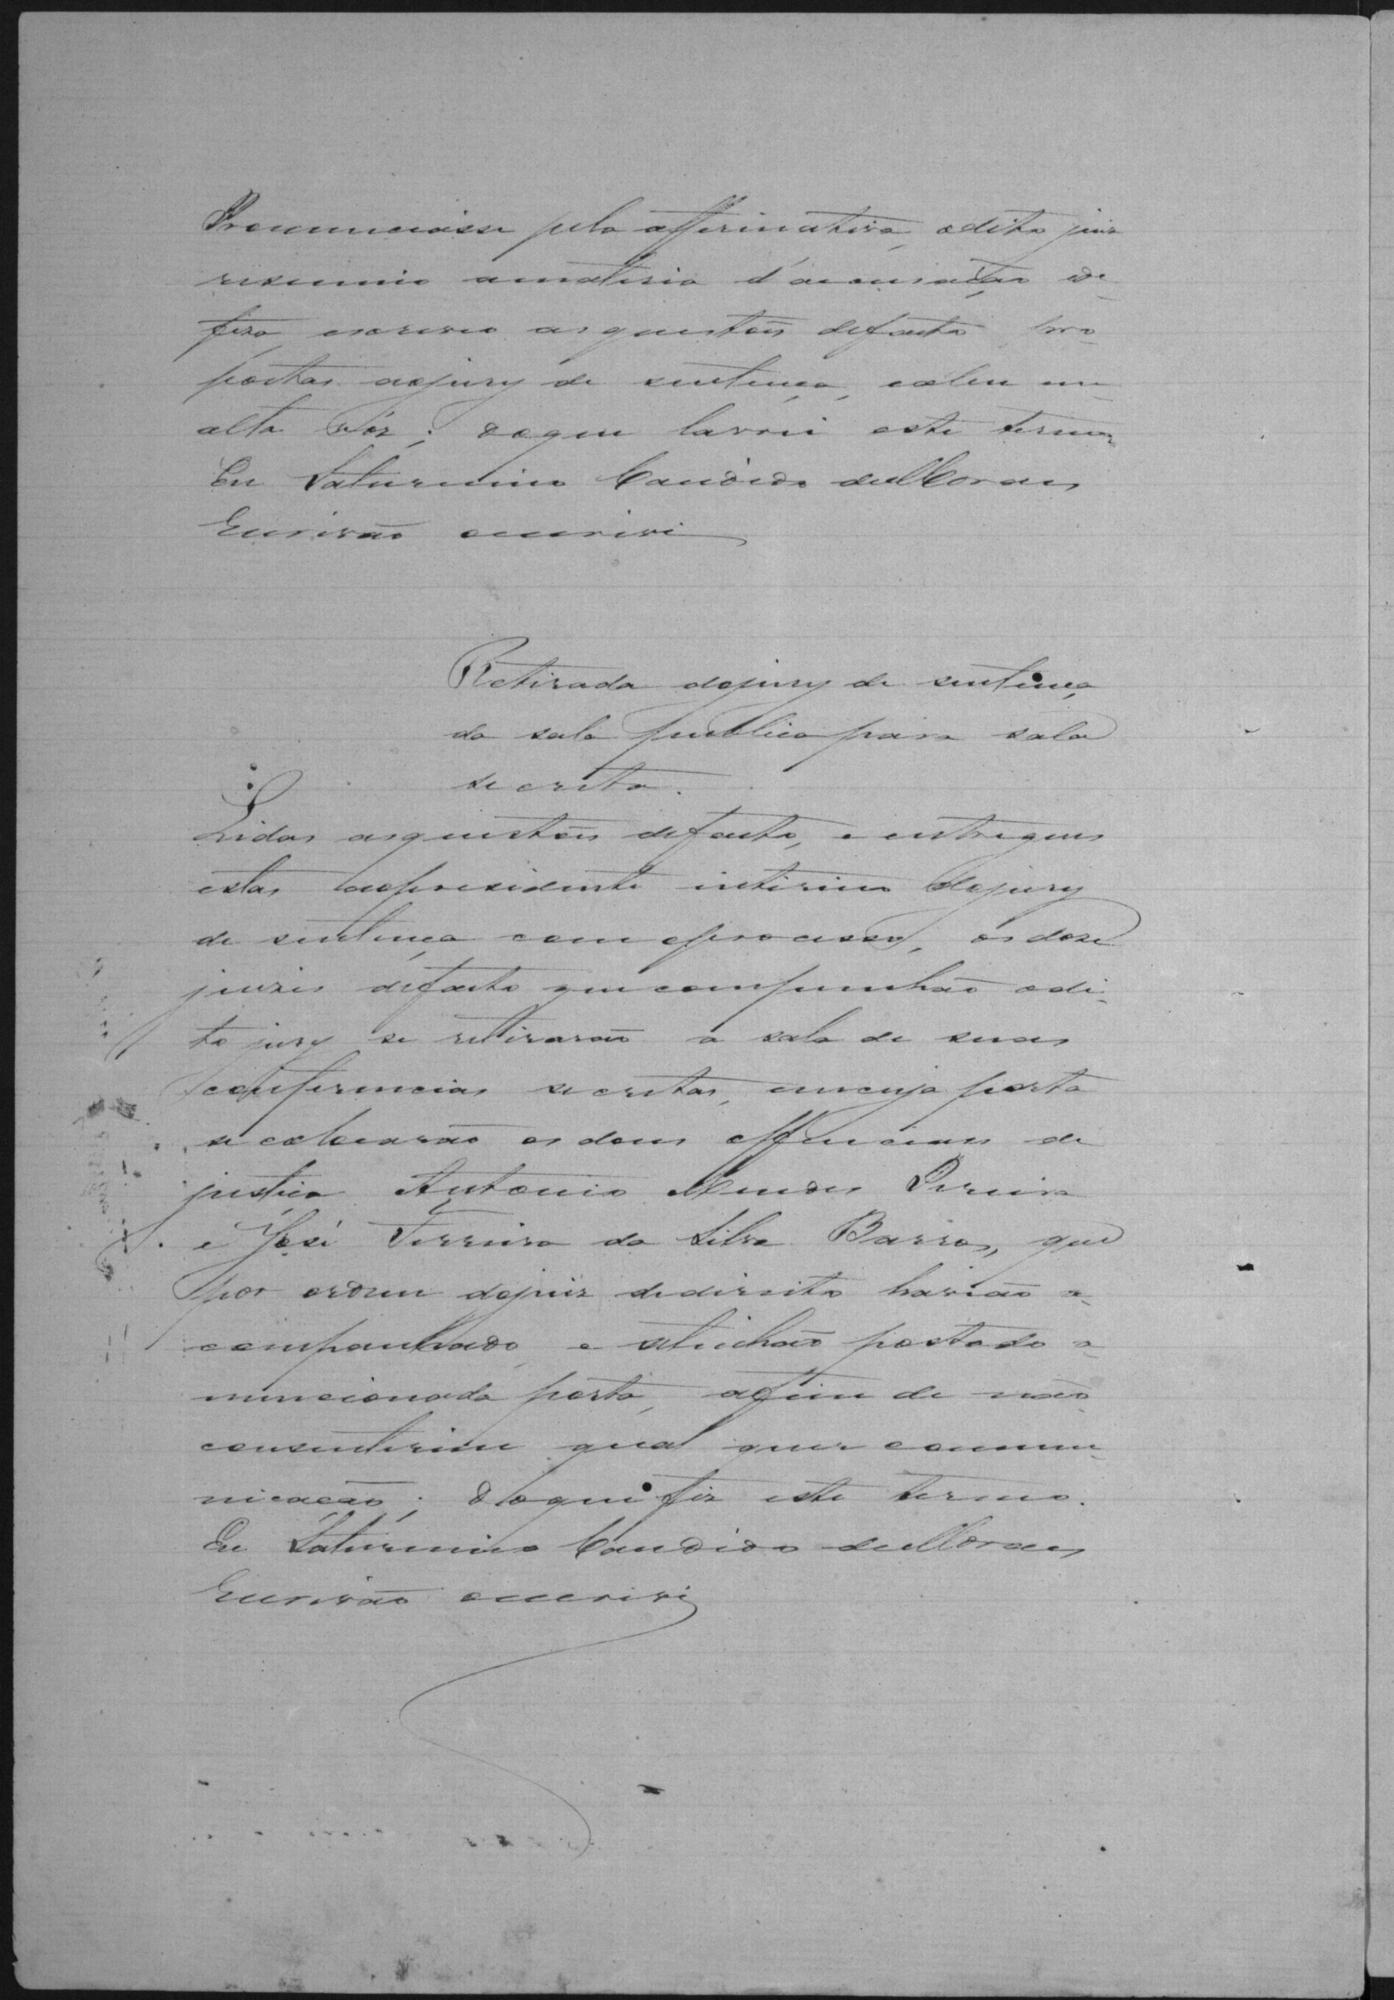 Pronunciasse pela affirmativa, o dito juiz
resumio a materia d'acusação e de-
feza, escreveo as questões de facto pro-
postas ao jury de sentença, e as leu em
alta vóz; do que lavrei este termo
Eu Saturnino Candido de Moraes
Escrivão o escrivi
Retirada do jury de sentença,
da sala publica para sala
secreta.
Lidas as questões de facto, e entregues
estas ao presidente interino do jury
de sentença com o processo, os doze
juizes de facto que compunhão o di-
to jury se retirarão a sala de suas
conferencias secretas, em cuja porta
se colocarão os dous officiaes de
justiça Antonio Mendes Pereira
e José Ferreira da Silva Barros, que
por ordem do juiz de direito havião a-
companhado e se tinhão postado a
mencionada porta, afim de não
consentirem qual quer commu-
nicação; do que fiz este termo.
Eu Saturnino Candido de Moraes
Escrivão o escrivi